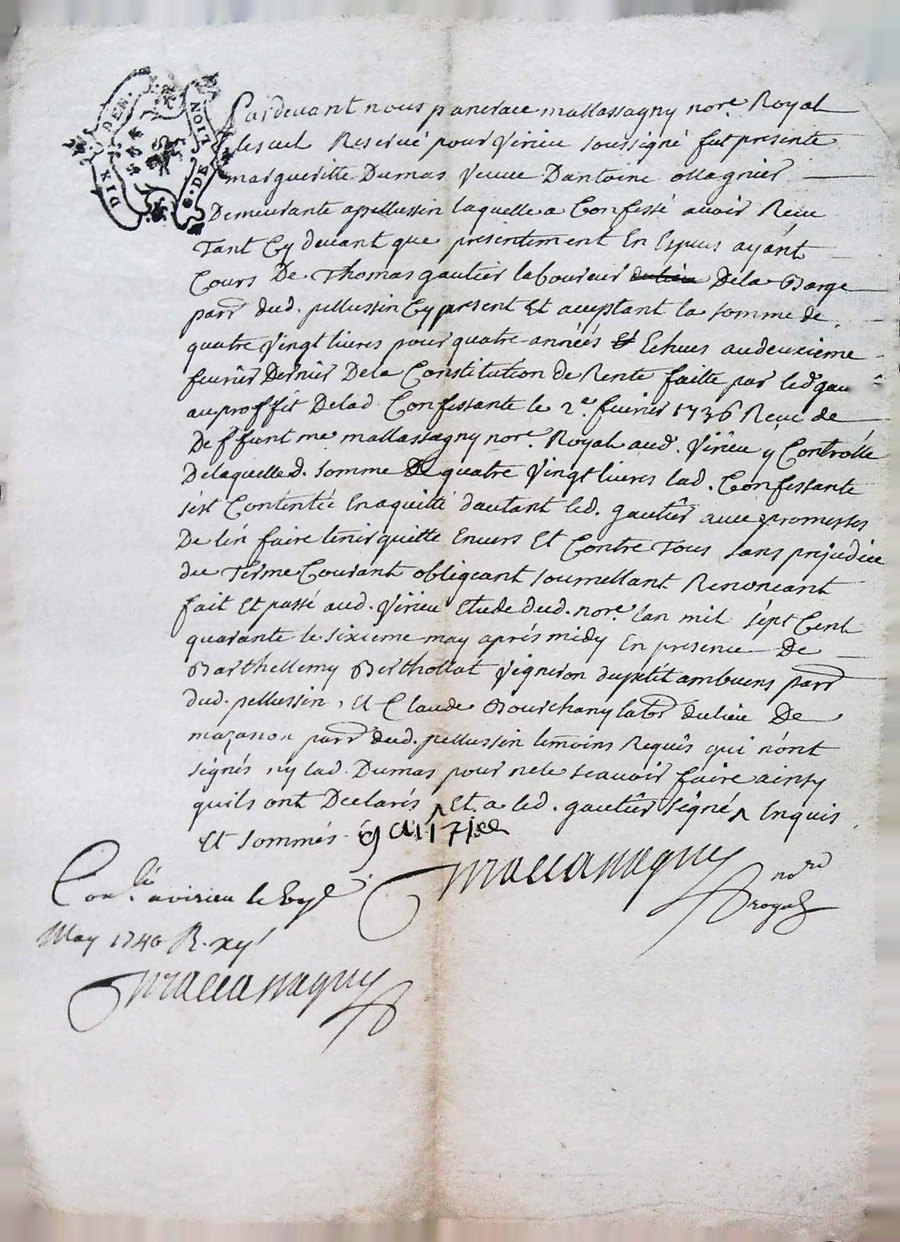 DIX DEN.
G. DE
Pardevant nous pancrace mallassagny nore. Royal
Reservé pour Virieu soussigné fut presente
margueritte Dumas Veuve Dantoine ollagnier
Demeurante apellussin laquelle a Confessé avoir Reçu
Tant Cy devant que presentement En Espces ayant
Cours De Thomas gautier laboureur Dela Barge
parr dud. pellussin Cy present Et acceptant la somme de
quatre Vingt livres pour quatre années Echues audeuxieme
fevrier Dernier Dela Constitution de Rente faite par led. gau
auproffit Delad. Confessante le 2e. fevrier 1736 Reçue de
Deffunt me mallassagny nore. Royal aud. Virieu y Controllé
Delaquelle d. somme De quatre Vingt livres lad. Confessante
sest Contentée Enaquitté dautant led. gautier avec promesses
De len faire tenir quitte Envers Et Contre Tous sans prejudice
du Terme Courant obligeant soumettant Renonceant
fait Et passé aud. Virieu Etude dud. nore. lan mil sept Cent
quarante le sixieme may aprés midy En presence De
Barthellemy Berthollat Vigneron dupetit ambuens parr
dud. pellussin, Et Claude Bourchany labr. dulieu De
mazanon parr dud. pellussin temoins Requis qui nont
signés ny lad. Dumas pour nele scavoir faire ainsy
quils ont Declarés Et a led. gautier signé Enquis
Et sommés
mallassagny nore
royal
Conlé. avirieu le
May 1740 R. xy
mallassagny